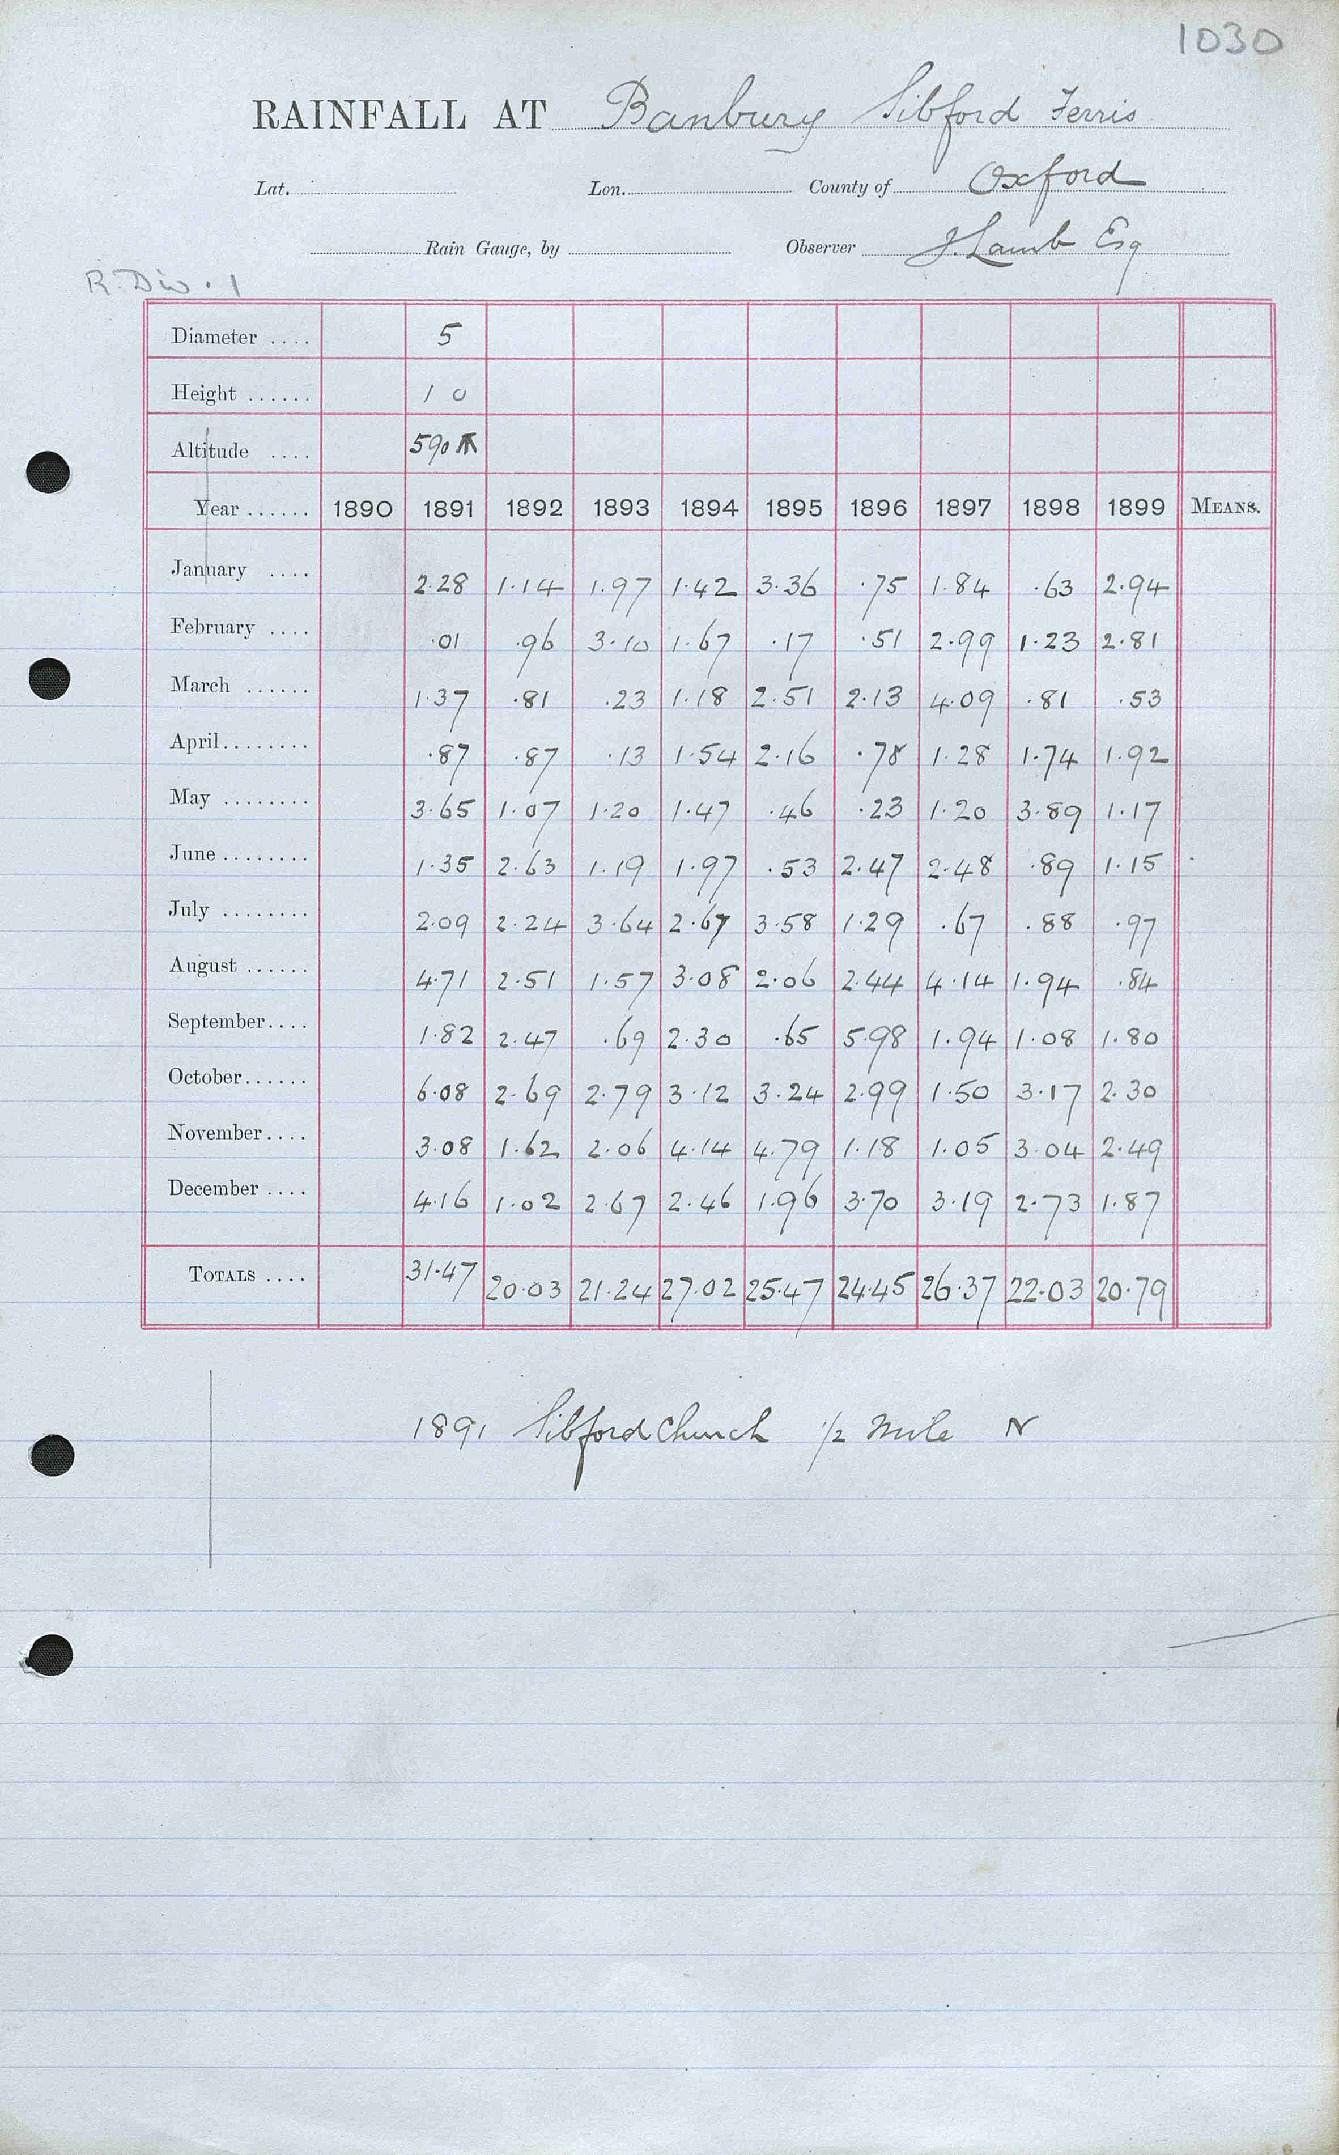 1030
RAINFALL AT Banbury Sibford Ferris
Lat. Lon. County of Oxford
Rain Gauge, by Observer J. Lamb Esq
R. Div. 1
Diameter .... 5
Height ...... 1 0
Altitude .... 590
Year ...... 1890 1891 1892 1893 1894 1895 1896 1897 1898 1899 MEANS.
January .... 2.28 1.14 1.97 1.42 3.36 .75 1.84 .63 2.94
February .... .01 .96 3.10 1.67 .17 .51 2.99 1.23 2.81
March ...... 1.37 .81 .23 1.18 2.51 2.13 4.09 .81 .53
April........ .87 .87 .13 1.54 2.16 .78 1.28 1.74 1.92
May ........ 3.65 1.07 1.20 1.47 .46 .23 1.20 3.89 1.17
June........ 1.35 2.63 1.19 1.97 .53 2.47 2.48 .89 1.15
July ........ 2.09 2.24 3.64 2.67 3.58 1.29 .67 .88 .97
August ...... 4.71 2.51 1.57 3.08 2.06 2.44 4.14 1.94 .84
September.... 1.82 2.47 .69 2.30 .65 5.98 1.94 1.08 1.80
October...... 6.08 2.69 2.79 3.12 3.24 2.99 1.50 3.17 2.30
November.... 3.08 1.62 2.06 4.14 4.79 1.18 1.05 3.04 2.49
December .... 4.16 1.02 2.67 2.46 1.96 3.70 3.19 2.73 1.87
TOTALS .... 31.47 20.03 21.24 27.02 25.47 24.45 26.37 22.03 20.79
1891 Sibford Church 1/2 Mile N